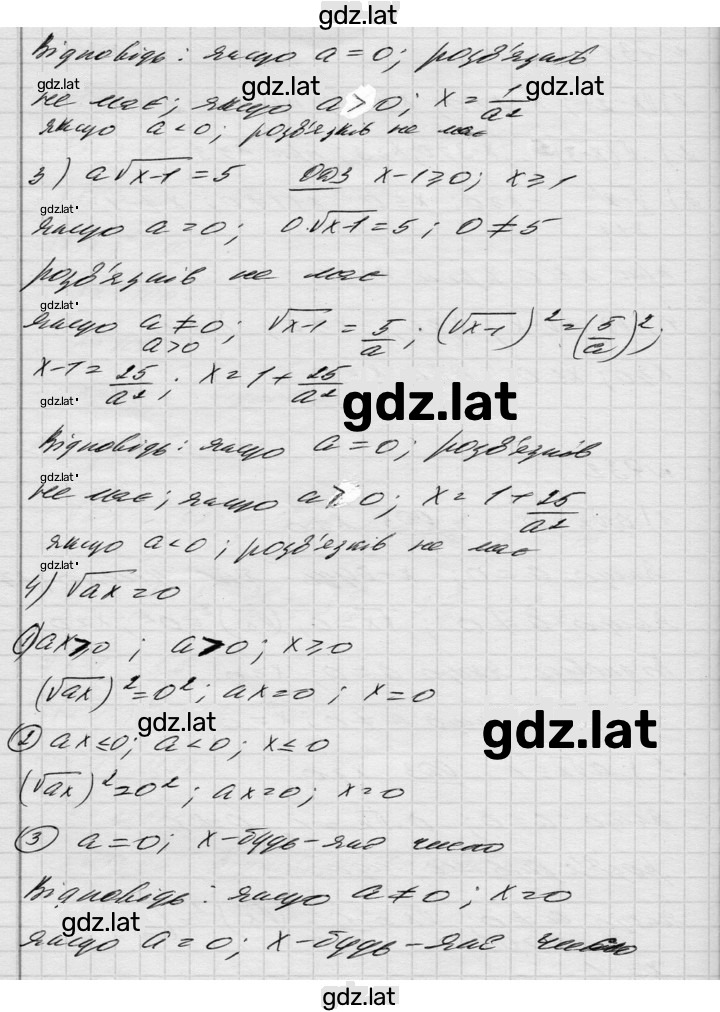 gdz.lat
Відповідь: якщо a = 0; розв'язків
gdz.lat gdz.lat gdz.lat
не має; якщо a > 0; x = 1/a²
якщо a < 0; розв'язків не має
3) a√(x-1) = 5 ОДЗ x-1 ≥ 0; x ≥ 1
gdz.lat
якщо a = 0; 0·√(x-1) = 5; 0 ≠ 5
розв'язків не має
gdz.lat
якщо a ≠ 0; √(x-1) = 5/a; (√(x-1))² = (5/a)²;
a > 0
x-1 = 25/a²; x = 1 + 25/a²
gdz.lat gdz.lat
Відповідь: якщо a = 0; розв'язків
gdz.lat
не має; якщо a > 0; x = 1 + 25/a²
якщо a < 0; розв'язків не має
gdz.lat
4) √(ax) = 0
① ax ≥ 0; a > 0; x ≥ 0
(√(ax))² = 0²; ax = 0; x = 0
gdz.lat gdz.lat
② ax ≤ 0; a < 0; x ≤ 0
(√(ax))² = 0²; ax = 0; x = 0
③ a = 0; x - будь-яке число
Відповідь: якщо a ≠ 0; x = 0
gdz.lat
якщо a = 0; x - будь-яке число
gdz.lat